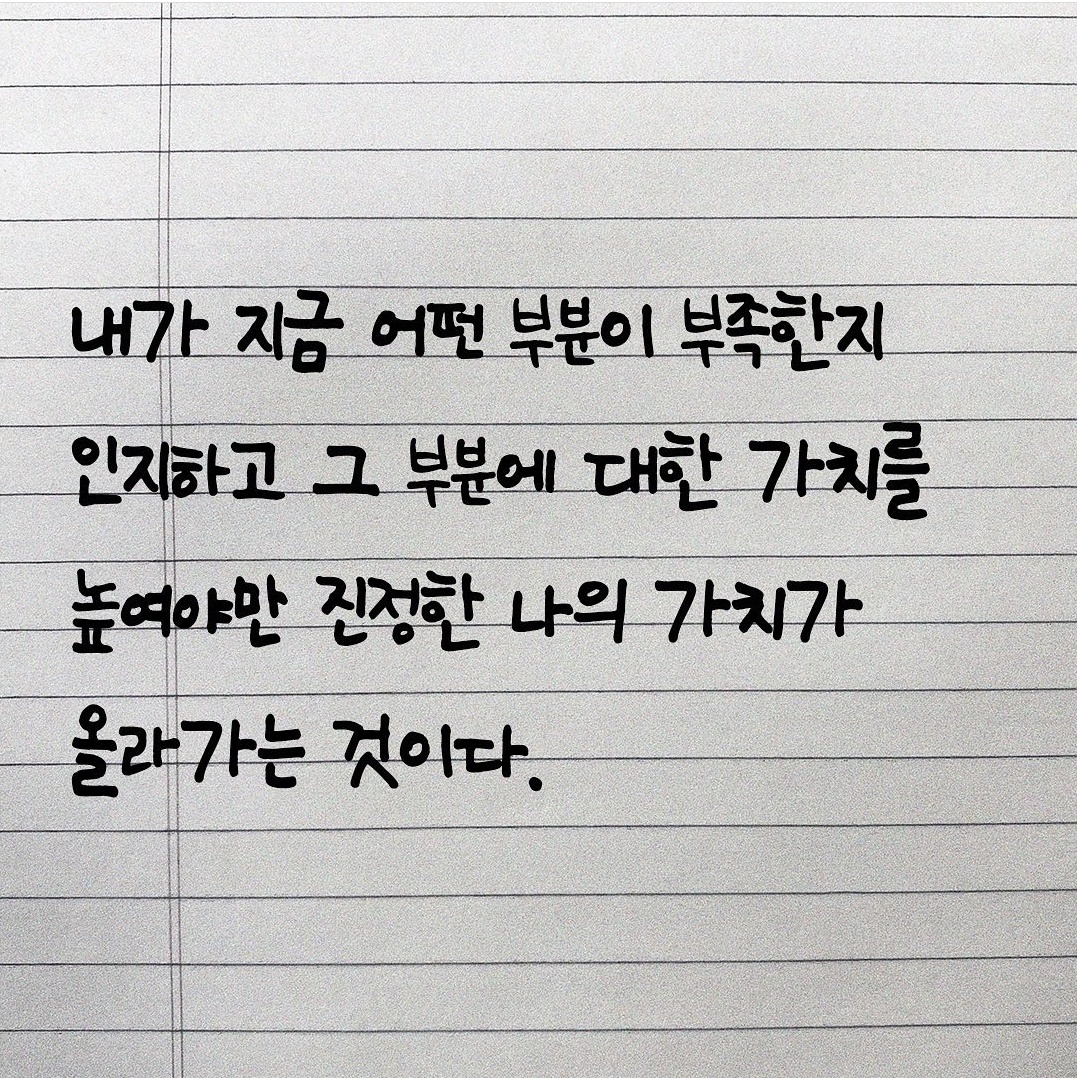 내가 지금 어떤 부분이 부족한지
인지하고 그 부분에 대한 가치를
높여야만 진정한 나의 가치가
올라가는 것이다.